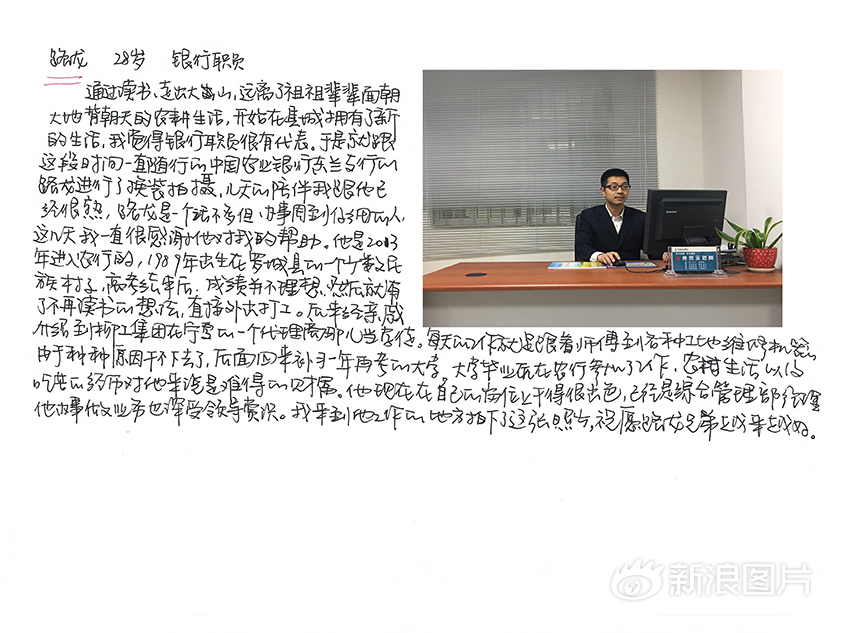 路龙 28岁 银行职员
通过读书、走出大山,远离了祖祖辈辈面朝
大地背朝天的农耕生活,开始在县城拥有了新
的生活,我觉得银行职员很有代表。于是就跟
这段时间一直随行的中国农业银行东兰支行的
路龙进行了换装拍摄,几天的陪伴我跟他已
经很熟,路龙是一个话不多但办事周到仔细的人,
这几天我一直很感谢他对我的帮助。他是2013
年进入农行的,1989年出生在罗城县的一个少数民
族村子,高考结束后,成绩并不理想,然后就有
了不再读书的想法,直接外出打工。后来经亲戚
介绍到柳工集团在宁夏的一个代理商那儿当学徒。每天的工作就是跟着师傅到各种工地维修机器
由于种种原因干不下去了,后面回来补习一年再考的大学。大学毕业后在农行参加了工作,农村生活以及
吃苦的经历对他来说是难得的财富。他现在在自己的岗位上干得很出色,已经是综合管理部经理
他办事做业务也深受领导赏识。我来到他工作的地方拍下了这张照片,祝愿路龙兄弟越来越好。
新浪图片